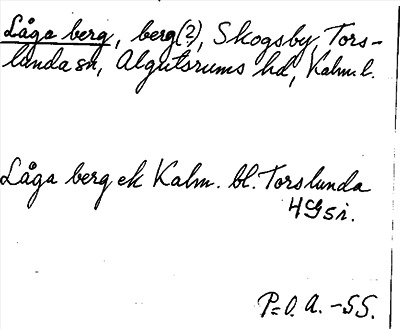 Låga berg, berg(?), Skogsby, Tors-
lunda sn, Algutsrums hd, Kalm. l.
Låga berg ek Kalm. bl. Torslunda
4G5i.
P=O. A. -55.